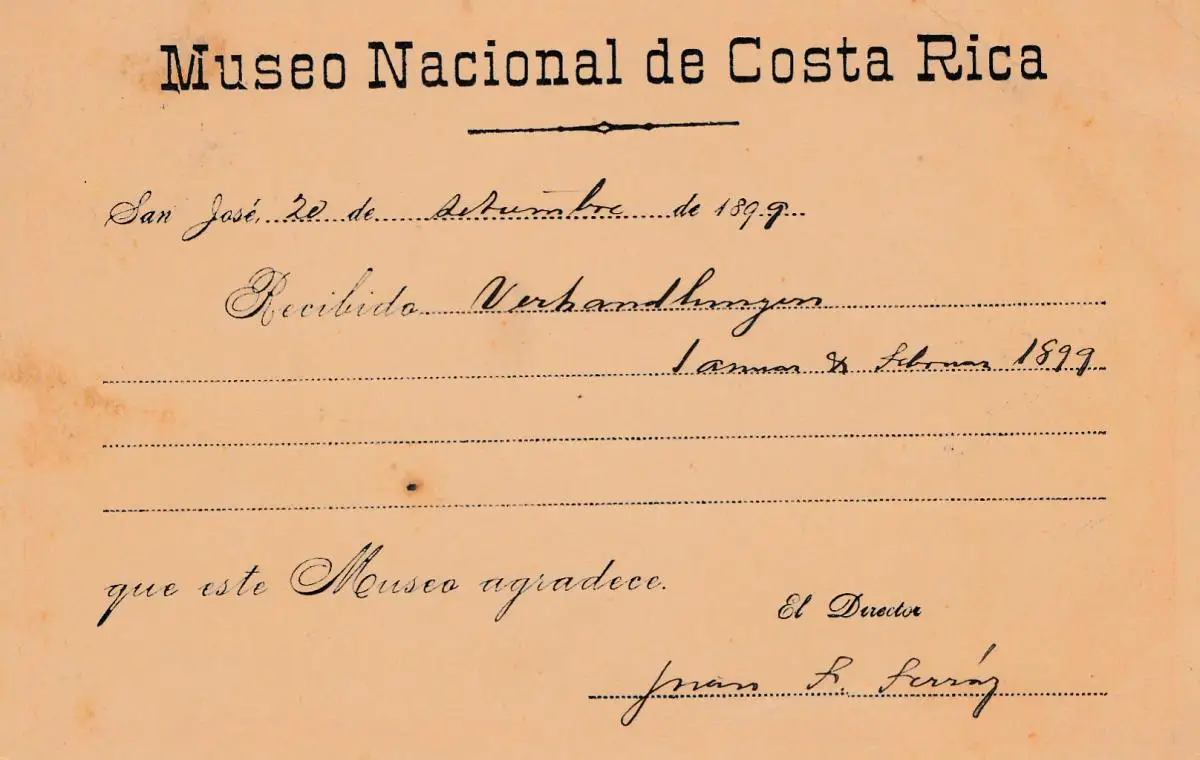 Museo Nacional de Costa Rica
San José, 20 de setiembre de 1899
Recibido Verhandlungen
Januar & Februar 1899
que este Museo agradece.
El Director
Juan F. Ferráz